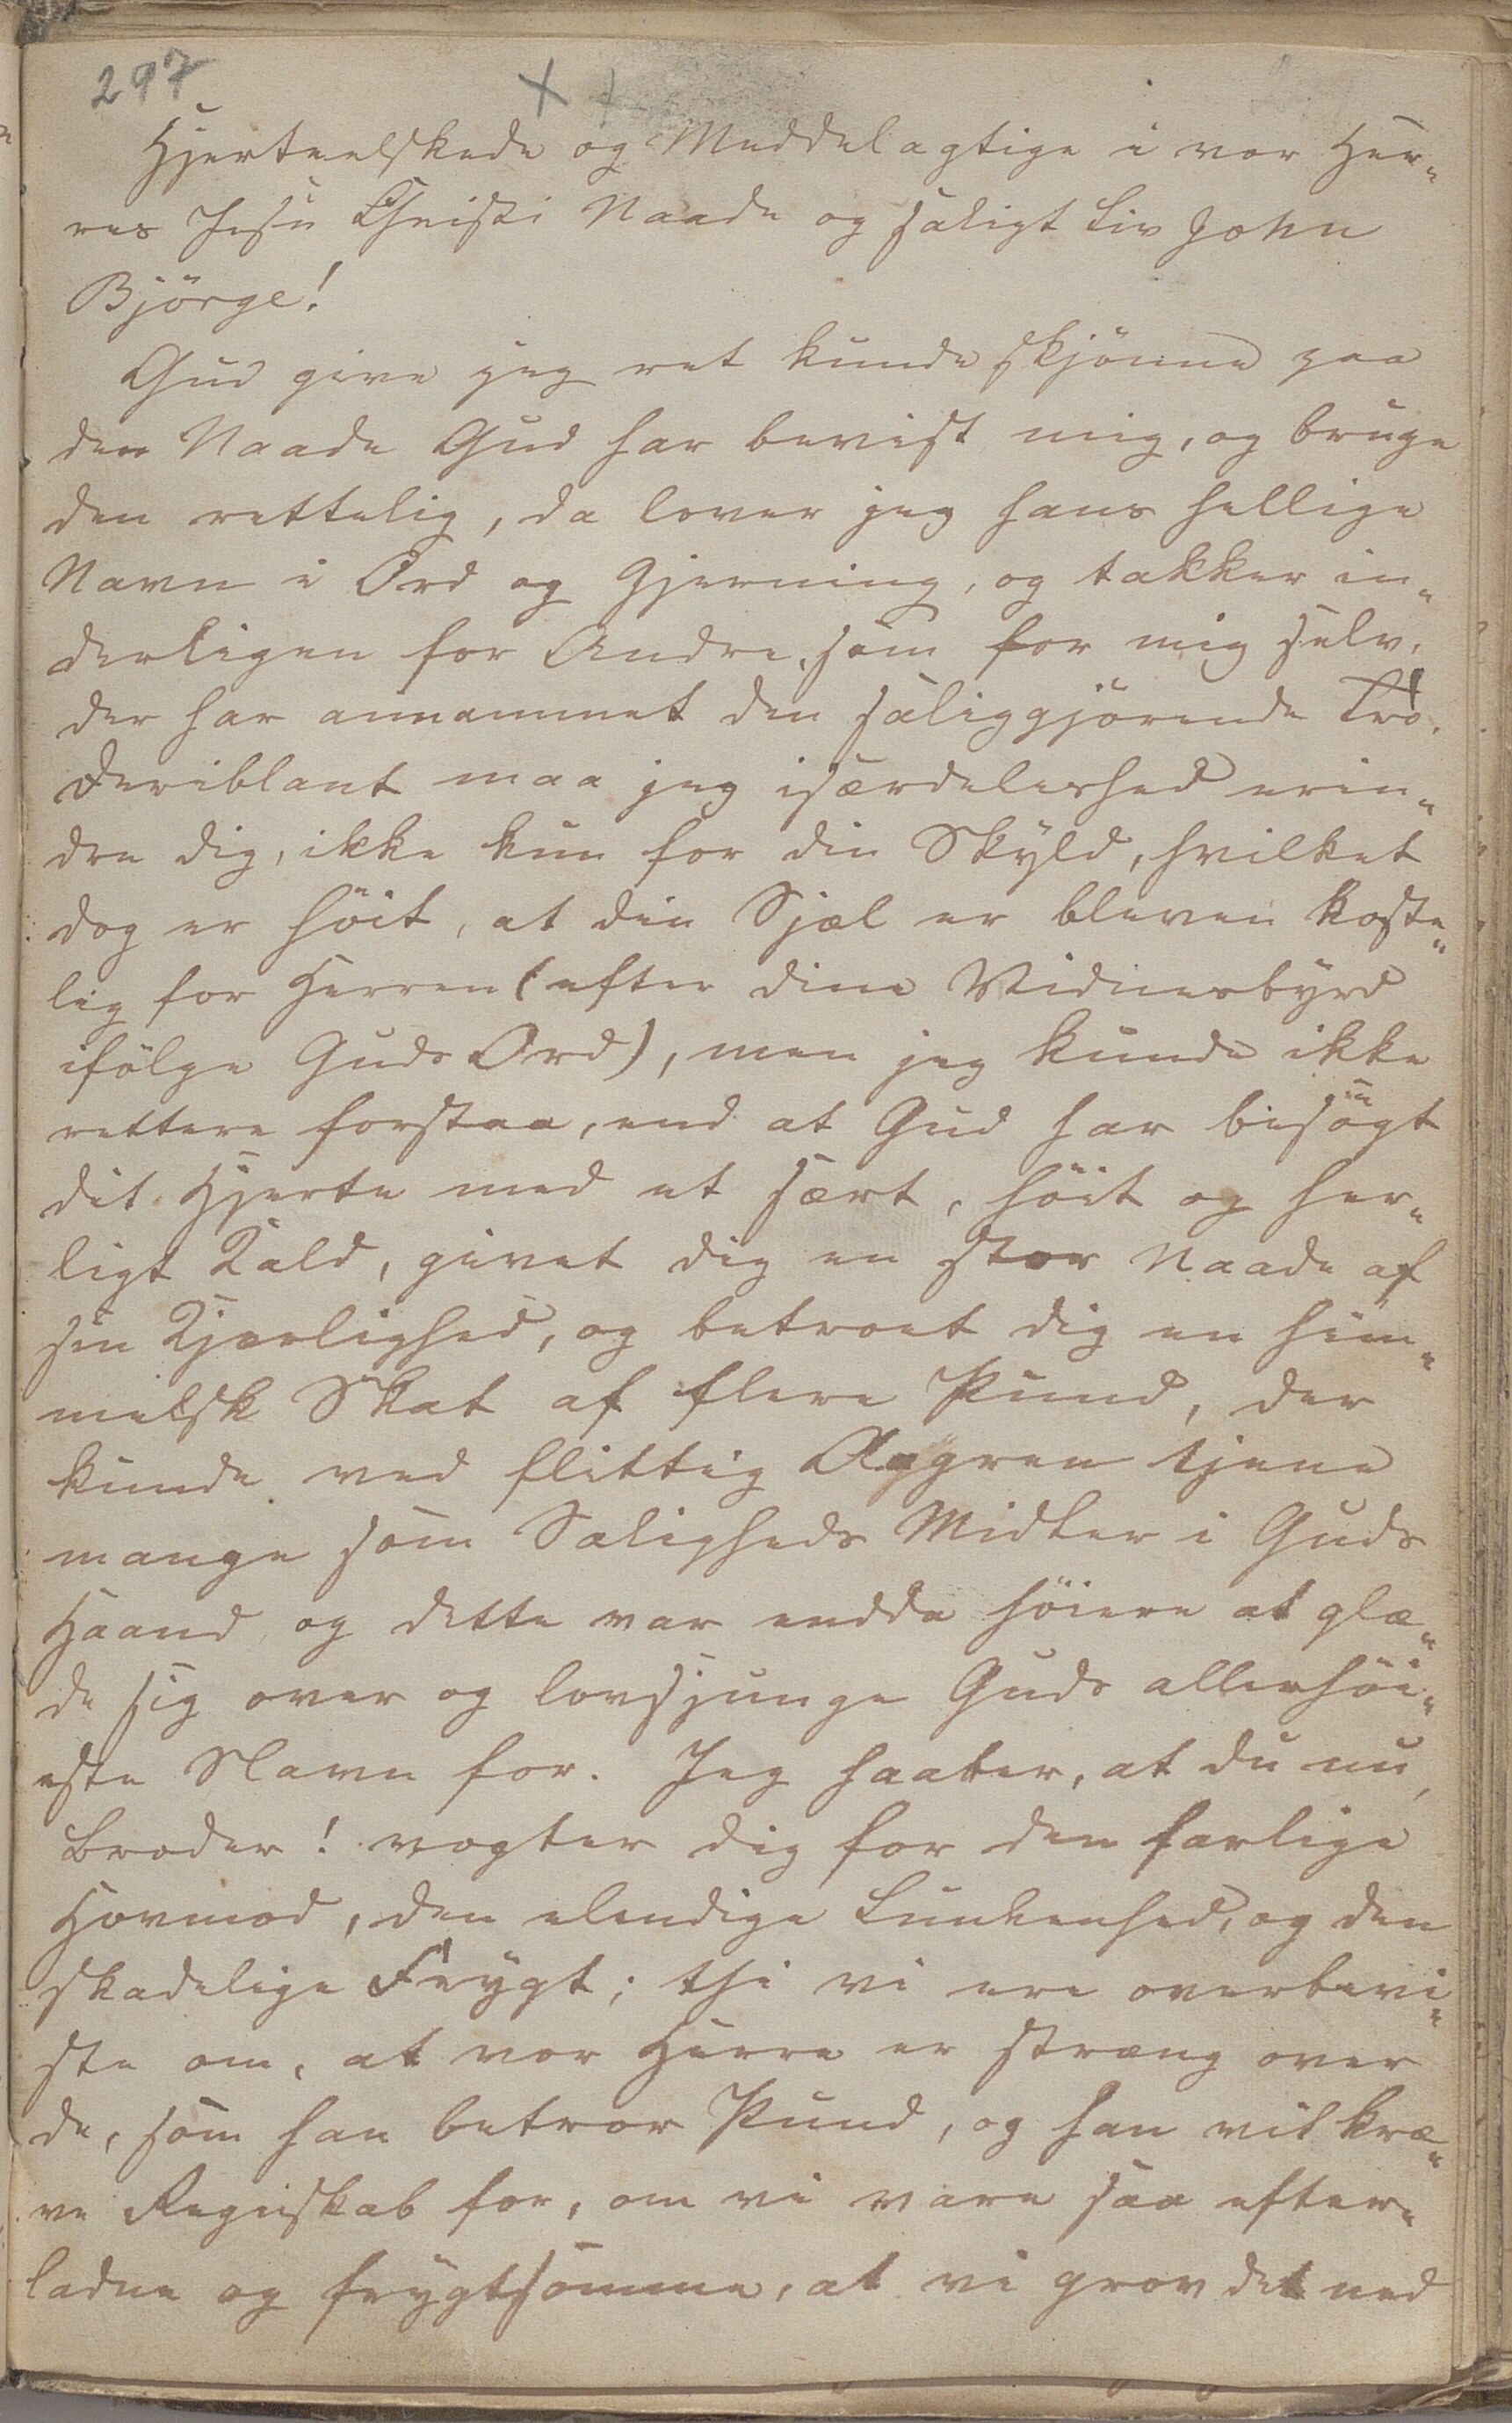 297
Hjerteelskede og Meddelagtige i vor Her-
res Jesu Christi Naade og saligt Liv John
Björge!
Gud give jeg ret kunde skjönne paa
den Naade Gud har bevist mig, og bruge
den rettelig, da lover jeg hans hellige
Navn i Ord og Gjerning, og takker in-
derligen for Andre, som for mig selv,
der har annammet den saliggjörende Tro.
Deriblant maa jeg isærdeleshed erin-
dre dig, ikke kun for din Skyld, hvilket
dog er höit, at din Sjæl er bleven koste-
lig for Herren (efter dine Vidnesbyrd
ifölge Guds Ord), men jeg kunde ikke
rettere forstaa, end at Gud har besögt
dit Hjerte med et sært, höit og her-
ligt Kald, givet dig en stor Naade af
sin Kjærlighed, og betroet dig en him-
melsk Skat af flere Pund, der
kunde ved flittig Aagren tjene
mange som Saligheds Midler i Guds
Haand og dette var endda höiere at glæ-
de sig over og lovsjunge Guds allerhöi-
este Navn for. Jeg haaber, at du nu,
Broder! vogter dig for den farlige
Hovmod, den elendige Lunkenhed, og den
skadelige Frygt; thi vi ere overbevi-
ste om, at vor Herre er stræng over
de, som han betror Pund, og han vil kræ-
ve Regnskab for, om vi vare saa efter-
ladne og frygtsomme, at vi grov det ned